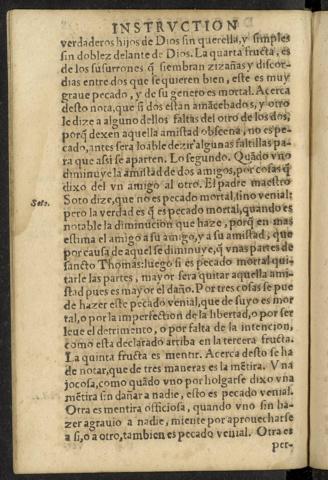 INSTRVCTION
verdaderos hijos de Dios sin querella, y simples
sin doblez delante de Dios. La quarta fructa, es
de los susurrones q̃ siembran zizañas y discor-
dias entre dos que se quieren bien, este es muy
graue pecado, y de su genero es mortal. Acerca
desto nota, que si dos estan amãcebados, y otro
le dize a alguno dellos faltas del otro de los dos,
porq̃ dexen aquella amistad obscena, no es pe-
cado, antes sera loable dezir algunas faltillas pa-
ra que assi se aparten. Lo segundo. Quãdo vno
diminuye la amistad de dos amigos, por cosas q̃
dixo del vn amigo al otro. El padre maestro
Soto.
Soto dize, que no es pecado mortal, sino venial:
pero la verdad es q̃ es pecado mortal, quando es
notable la diminucion que haze, porq̃ en mas
estima el amigo a su amigo, y a su amistad, que
por causa de aquel se diminuye, q̃ vnas partes de
sancto Thomas: luego si es pecado mortal qui-
tarle las partes, mayor sera quitar aquella ami-
stad pues es mayor el daño. Por tres cosas se pue
de hazer este pecado venial, que de suyo es mor
tal, o por la imperfection de la libertad, o por ser
leue el detrimento, o por falta de la intencion,
como esta declarado arriba en la tercera fructa.
La quinta fructa es mentir. Acerca desto se ha
de notar, que de tres maneras es la mẽtira. Vna
jocosa, como quãdo vno por holgarse dixo vna
mẽtira sin dañar a nadie, esto es pecado venial.
Otra es mentira officiosa, quando vno sin ha-
zer agrauio a nadie, miente por aprouecharse
a si, o a otro, tambien es pecado venial. Otra es
per-